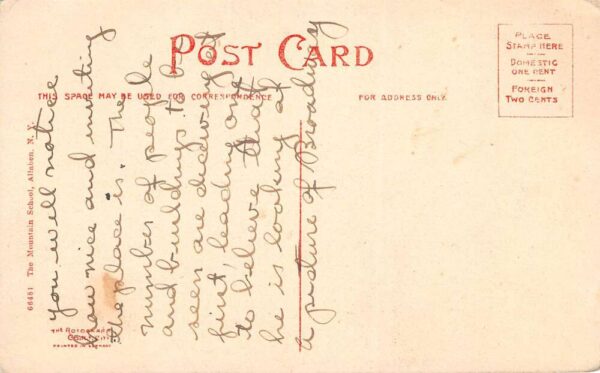 POST CARD
THIS SPACE MAY BE USED FOR CORRESPONDENCE
FOR ADDRESS ONLY.
PLACE
STAMP HERE
DOMESTIC
ONE CENT
FOREIGN
TWO CENTS
66451 The Mountain School, Allaben, N. Y.
you will notice
how nice and inviting
the place is. The
number of people
and buildings to be
seen are deceiving at
first, leading one
to believe that
he is looking at
a picture of Broadway
THE ROTOGRAPH
PRINTED IN GERMANY